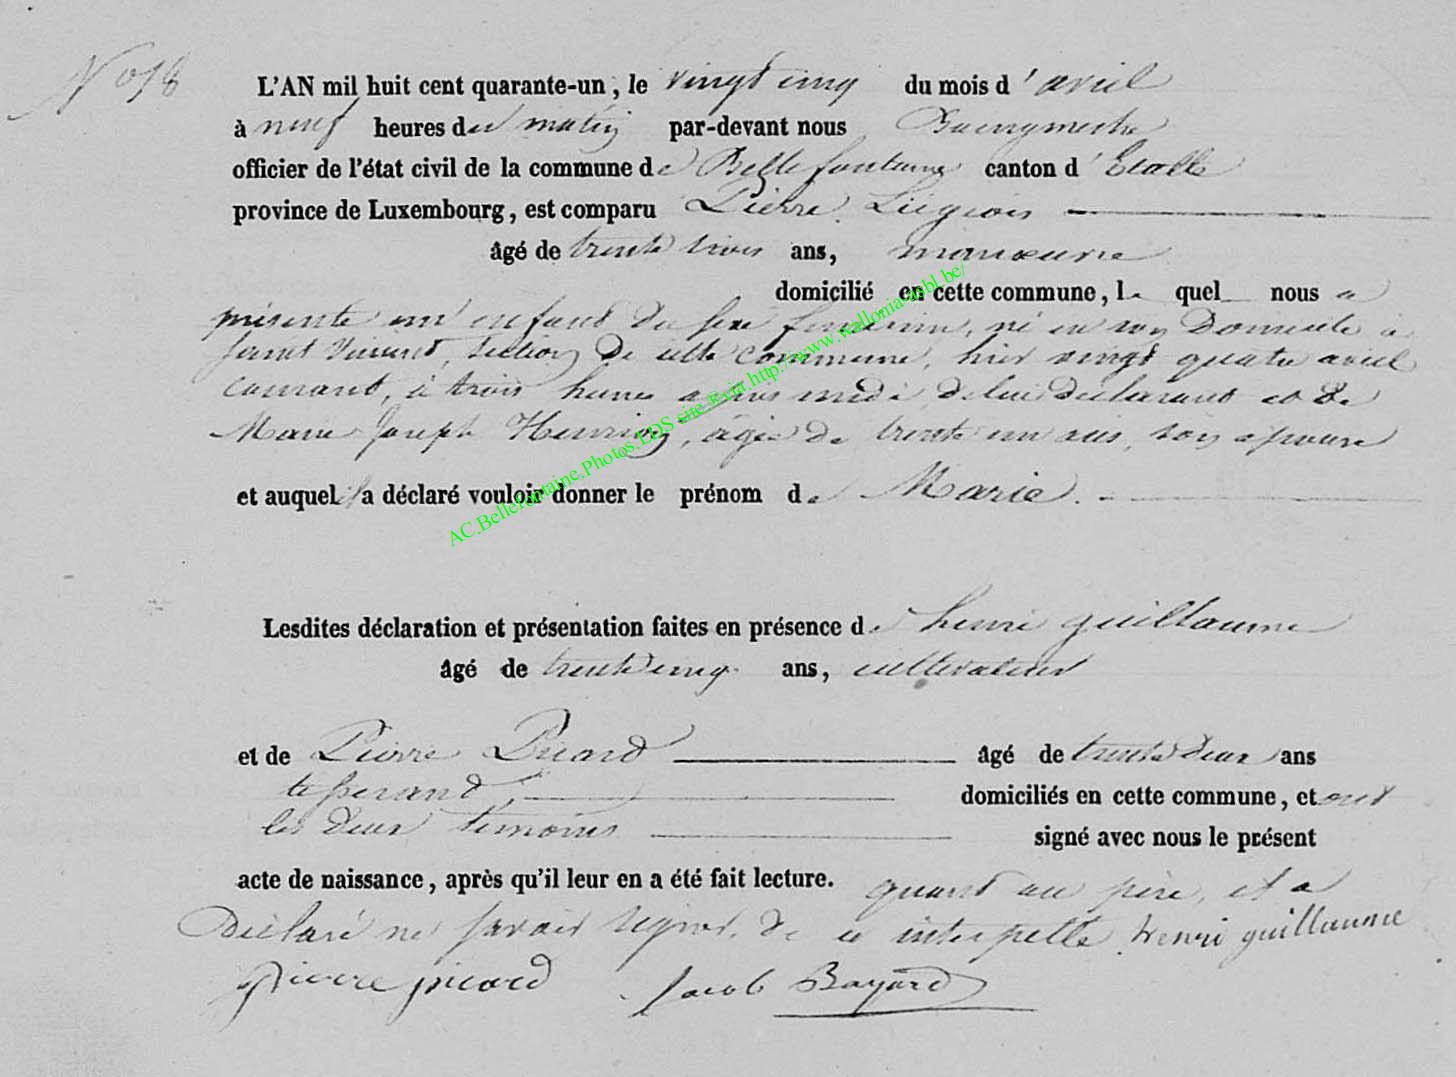 N° 18
L'AN mil huit cent quarante-un, le vingt cinq du mois d'avril
à neuf heures du matin par-devant nous Bourgmestre
officier de l'état civil de la commune de Bellefontaine canton d'Etalle
province de Luxembourg, est comparu Pierre Liégeois
âgé de trente trois ans, manœuvre
domicilié en cette commune, le quel nous a
présenté un enfant du sexe féminin, né en son Domicile à
Saint Vincent, Section de cette commune, hier vingt quatre avril
courant, à trois heures après midi de lui déclarant et de
Marie Joseph Henrion, âgée de trente un ans, son épouse
et auquel il a déclaré vouloir donner le prénom de Marie.
Lesdites déclaration et présentation faites en présence de henri guillaume
âgé de trente cinq ans, cultivateur
et de Pierre Picard âgé de trente deux ans
tisserand, domiciliés en cette commune, et ont
les deux témoins signé avec nous le présent
acte de naissance, après qu'il leur en a été fait lecture. quant au père, il a
Déclaré ne savoir signer, de ce interpellé. henri guillaume
pierre picard Jacob Bayard
AC.Bellefontaine.Photos.EDS site @ via http://www.wallonia-asbl.be/